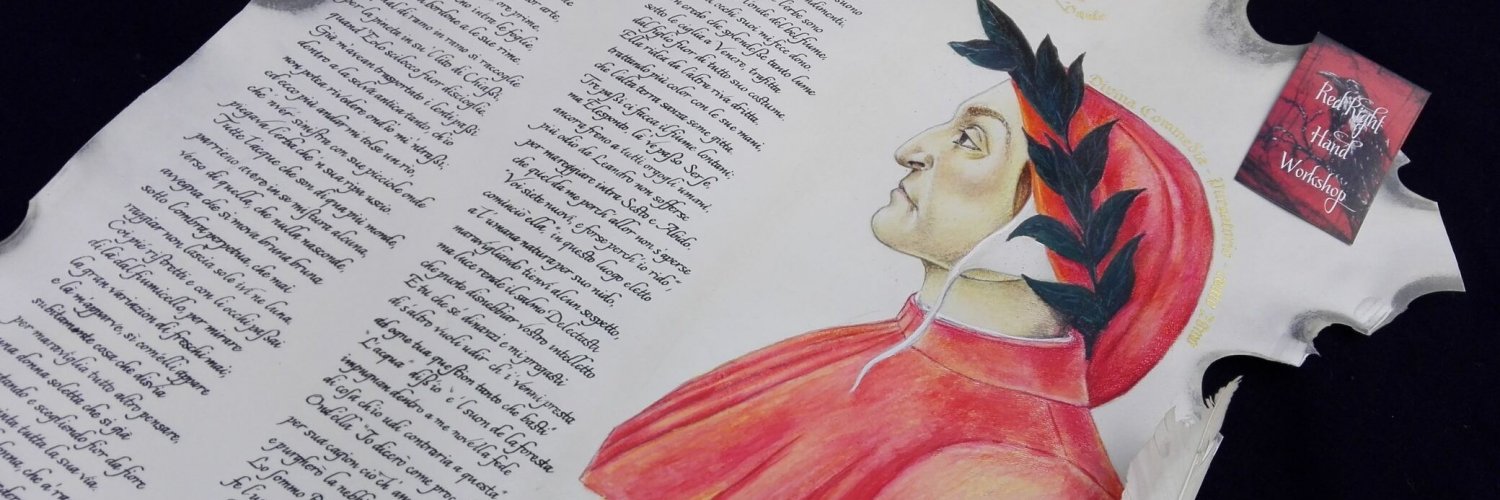 ore prime,
intra le foglie,
bordone a le sue rime,
tal qual di ramo in ramo si raccoglie
per la pineta in su 'l lito di Chiassi,
quand'Eolo scilocco fuor discioglie.
Già m'avean trasportato i lenti passi
dentro a la selva antica tanto, ch'io
non potea rivedere ond'io mi 'ntrassi;
ed ecco più andar mi tolse un rio,
che 'nver' sinistra con sue picciole onde
piegava l'erba che 'n sua ripa uscìo.
Tutte l'acque che son di qua più monde,
parrieno avere in sé mistura alcuna
verso di quella, che nulla nasconde,
avvegna che si mova bruna bruna
sotto l'ombra perpetua, che mai
raggiar non lascia sole ivi né luna.
Coi piè ristretti e con li occhi passai
di là dal fiumicello, per mirare
la gran variazion di freschi mai;
e là m'apparve, sì com'elli appare
subitamente cosa che disvia
per maraviglia tutto altro pensare,
una donna soletta che si gia
e scegliendo fior da fiore
tutta la sua via.
che a' ra
suono
l'erbe sono
l'onde del bel fiume,
li occhi suoi mi fece dono
Non credo che splendesse tanto lume
sotto le ciglia a Venere, trafitta
dal figlio fuor di tutto suo costume.
Ella ridea da l'altra riva dritta,
trattando più color con le sue mani,
che l'alta terra sanza seme gitta.
Tre passi ci facea il fiume lontani;
ma Elesponto, là 've passò Serse,
ancora freno a tutti orgogli umani,
più odio da Leandro non sofferse
per mareggiare intra Sesto e Abido,
che quel da me perch'allor non s'aperse
"Voi siete nuovi, e forse perch'io rido",
cominciò ella, "in questo luogo eletto
a l'umana natura per suo nido,
maravigliando tienvi alcun sospetto;
ma luce rende il salmo Delectasti,
che puote disnebbiar vostro intelletto
E tu che se' dinanzi e mi pregasti
di s'altro vuoli udir; ch'i' venni presta
ad ogne tua question tanto che basti"
"L'acqua" diss'io "e 'l suon de la foresta
impugnan dentro a me novella fede
di cosa ch'io udi' contraria a questa"
Ond'ella "Io dicerò come proc
per sua cagion ciò ch'am
e purgherò la nebbia
Lo sommo
Divina Commedia - Purgatorio -
Red Right
Hand
Workshop